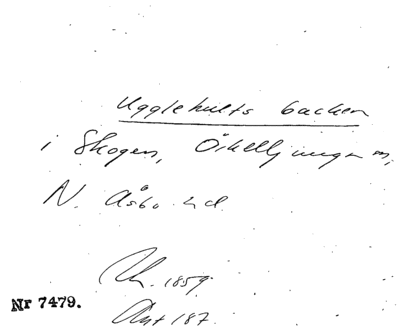 Ugglehults backen
i Skogen, Örkelljunga sn,
N. Åsbo hd
Ch. 1859
Nr 7479.
Ant 187